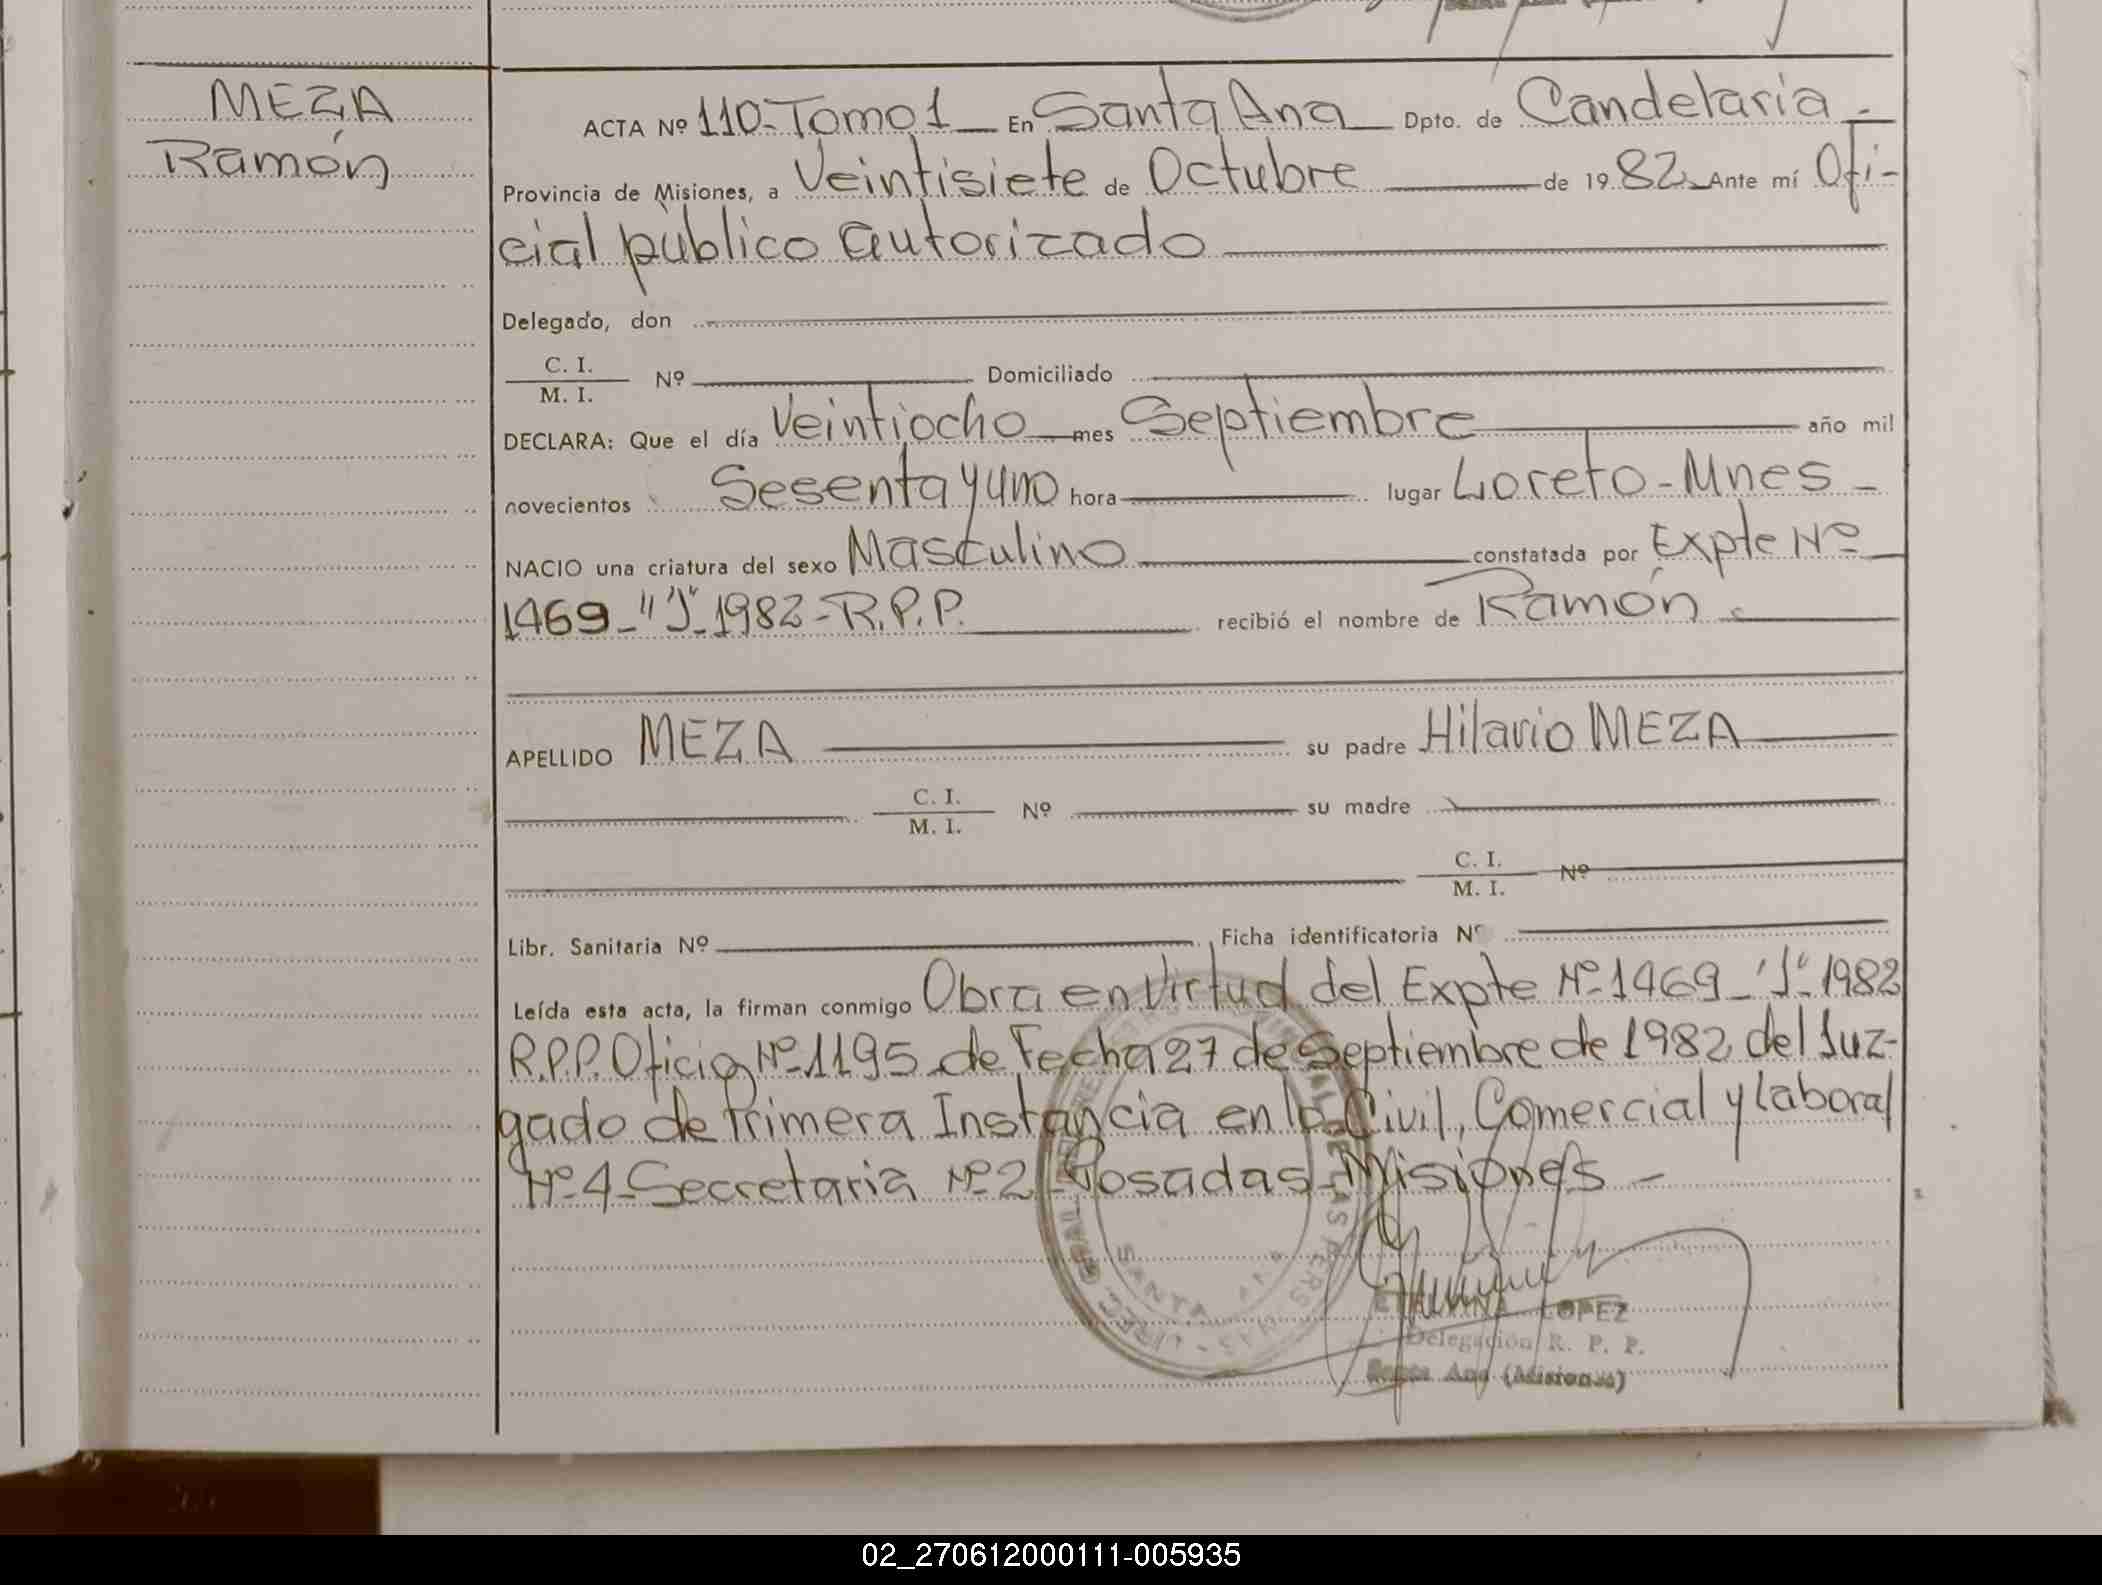 MEZA
Ramón
ACTA Nº 110-Tomo 1 En Santa Ana Dpto. de Candelaria -
Provincia de Misiones, a Veintisiete de Octubre de 1982 Ante mí Ofi-
cial público autorizado
Delegado, don
C. I.
M. I.
Nº Domiciliado
DECLARA: Que el día Veintiocho mes Septiembre año mil
novecientos Sesenta y uno hora lugar Loreto - Mnes -
NACIO una criatura del sexo Masculino constatada por Expte Nº
1469 - "J" - 1982 - R.P.P. recibió el nombre de Ramón
APELLIDO MEZA su padre Hilario MEZA
C. I.
M. I.
Nº su madre
C. I.
M. I.
Nº
Libr. Sanitaria Nº Ficha identificatoria Nº
Leída esta acta, la firman conmigo Obra en Virtud del Expte Nº 1469 - "J" - 1982
R.P.P. Oficio Nº 1195 de Fecha 27 de Septiembre de 1982 del Juz-
gado de Primera Instancia en lo Civil, Comercial y Laboral
Nº 4 - Secretaria Nº 2 - Posadas - Misiones -
SANTA ANA
LOPEZ
Delegación R. P. P.
Santa Ana (Misiones)
02_270612000111-005935